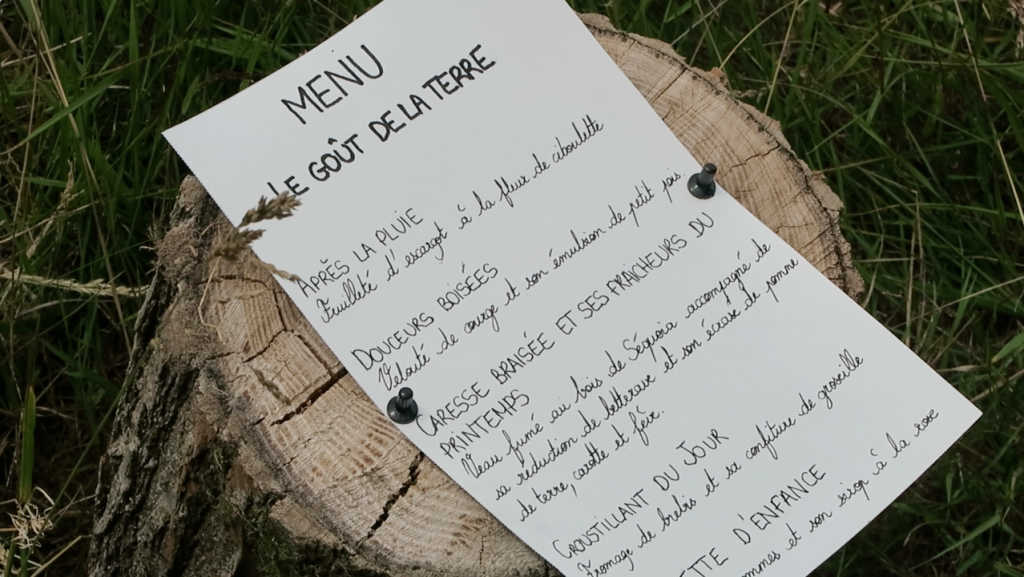 MENU
LE GOÛT DE LA TERRE
APRÈS LA PLUIE
Fuilleté d'escargot à la fleur de ciboulette
DOUCEURS BOISÉES
Velouté de courge et son émulsion de petit pois
CARESSE BRAISÉE ET SES FRAICHEURS DU
PRINTEMPS
Veau fumé au bois de Séquoia accompagné de
sa réduction de betterave et son écrasé de pomme
de terre, carotte et fév.
CROUSTILLANT DU JOUR
Fromage de brebis et sa confiture de groseille
TTE D'ENFANCE
ommes et son sirop à la rose